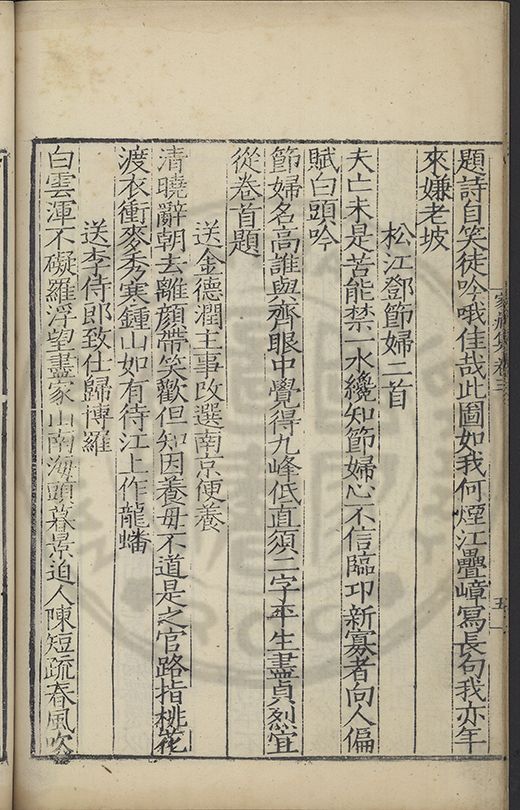 題詩自笑徒吟哦佳哉此圖如我何煙江疊嶂寫長句我亦年
來嫌老坡
松江鄧節婦二首
夫亡未是苦能禁一水纔知節婦心不信臨卭新寡者向人偏
賦白頭吟
節婦名高誰與齊眼中覺得九峰低直須二字平生盡貞烈宜
從卷首題
送金德潤主事改選南京便養
清曉辭朝去離顔帶笑歡但知因養母不道是之官路指桃花
渡衣衝麥秀寒鍾山如有待江上作龍蟠
送李侍郎致仕歸博羅
白雲渾不礙羅浮望盡家山南海頭暮景迫人陳短疏春風吹
家藏集卷三
五